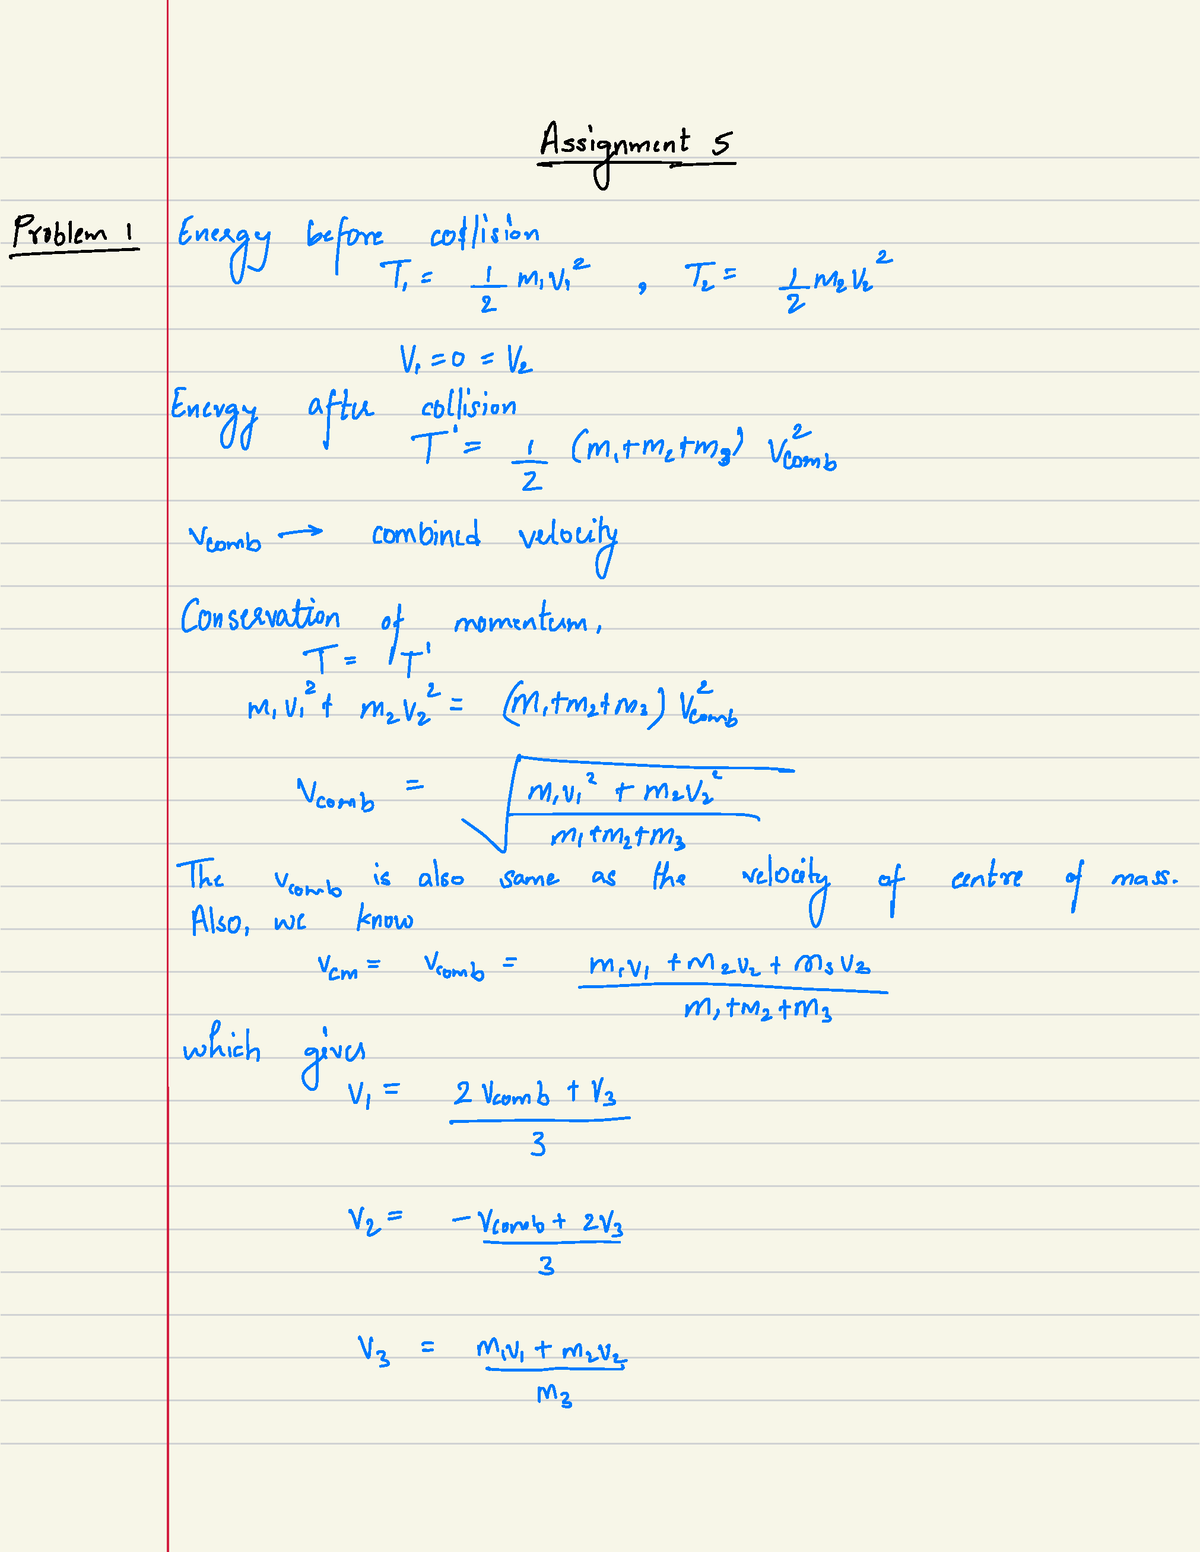 Assignment 5
Problem 1
Energy before collision
T₁ = 1/2 m₁v₁² , T₂ = 1/2 m₂v₂²
V₁ = 0 = V₂
Energy after collision
T' = 1/2 (m₁+m₂+m₃) v²comb
vcomb → combined velocity
Conservation of momentum,
T = T'
m₁v₁² + m₂v₂² = (m₁+m₂+m₃) v²comb
vcomb = √((m₁v₁² + m₂v₂²)/(m₁+m₂+m₃))
The vcomb is also same as the velocity of centre of mass.
Also, we know
vcm = vcomb = (m₁v₁ + m₂v₂ + m₃v₃)/(m₁+m₂+m₃)
which gives
v₁ = (2 vcomb + v₃)/3
v₂ = (-vcomb + 2v₃)/3
v₃ = (m₁v₁ + m₂v₂)/m₃